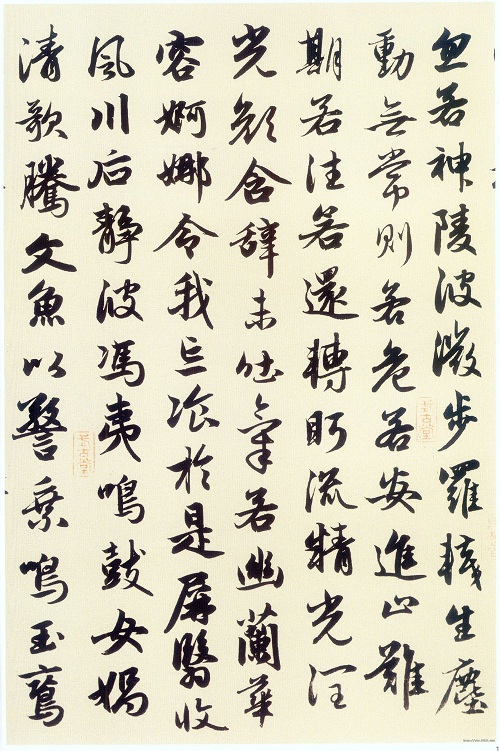 忽若神陵波微步羅韈生塵
動無常則若危若安進止難
期若往若還轉眄流精光潤
光顏含辭未吐氣若幽蘭華
容婀娜令我忘飡於是屏翳收
風川后靜波馮夷鳴鼓女媧
清歌騰文魚以警乘鳴玉鸞